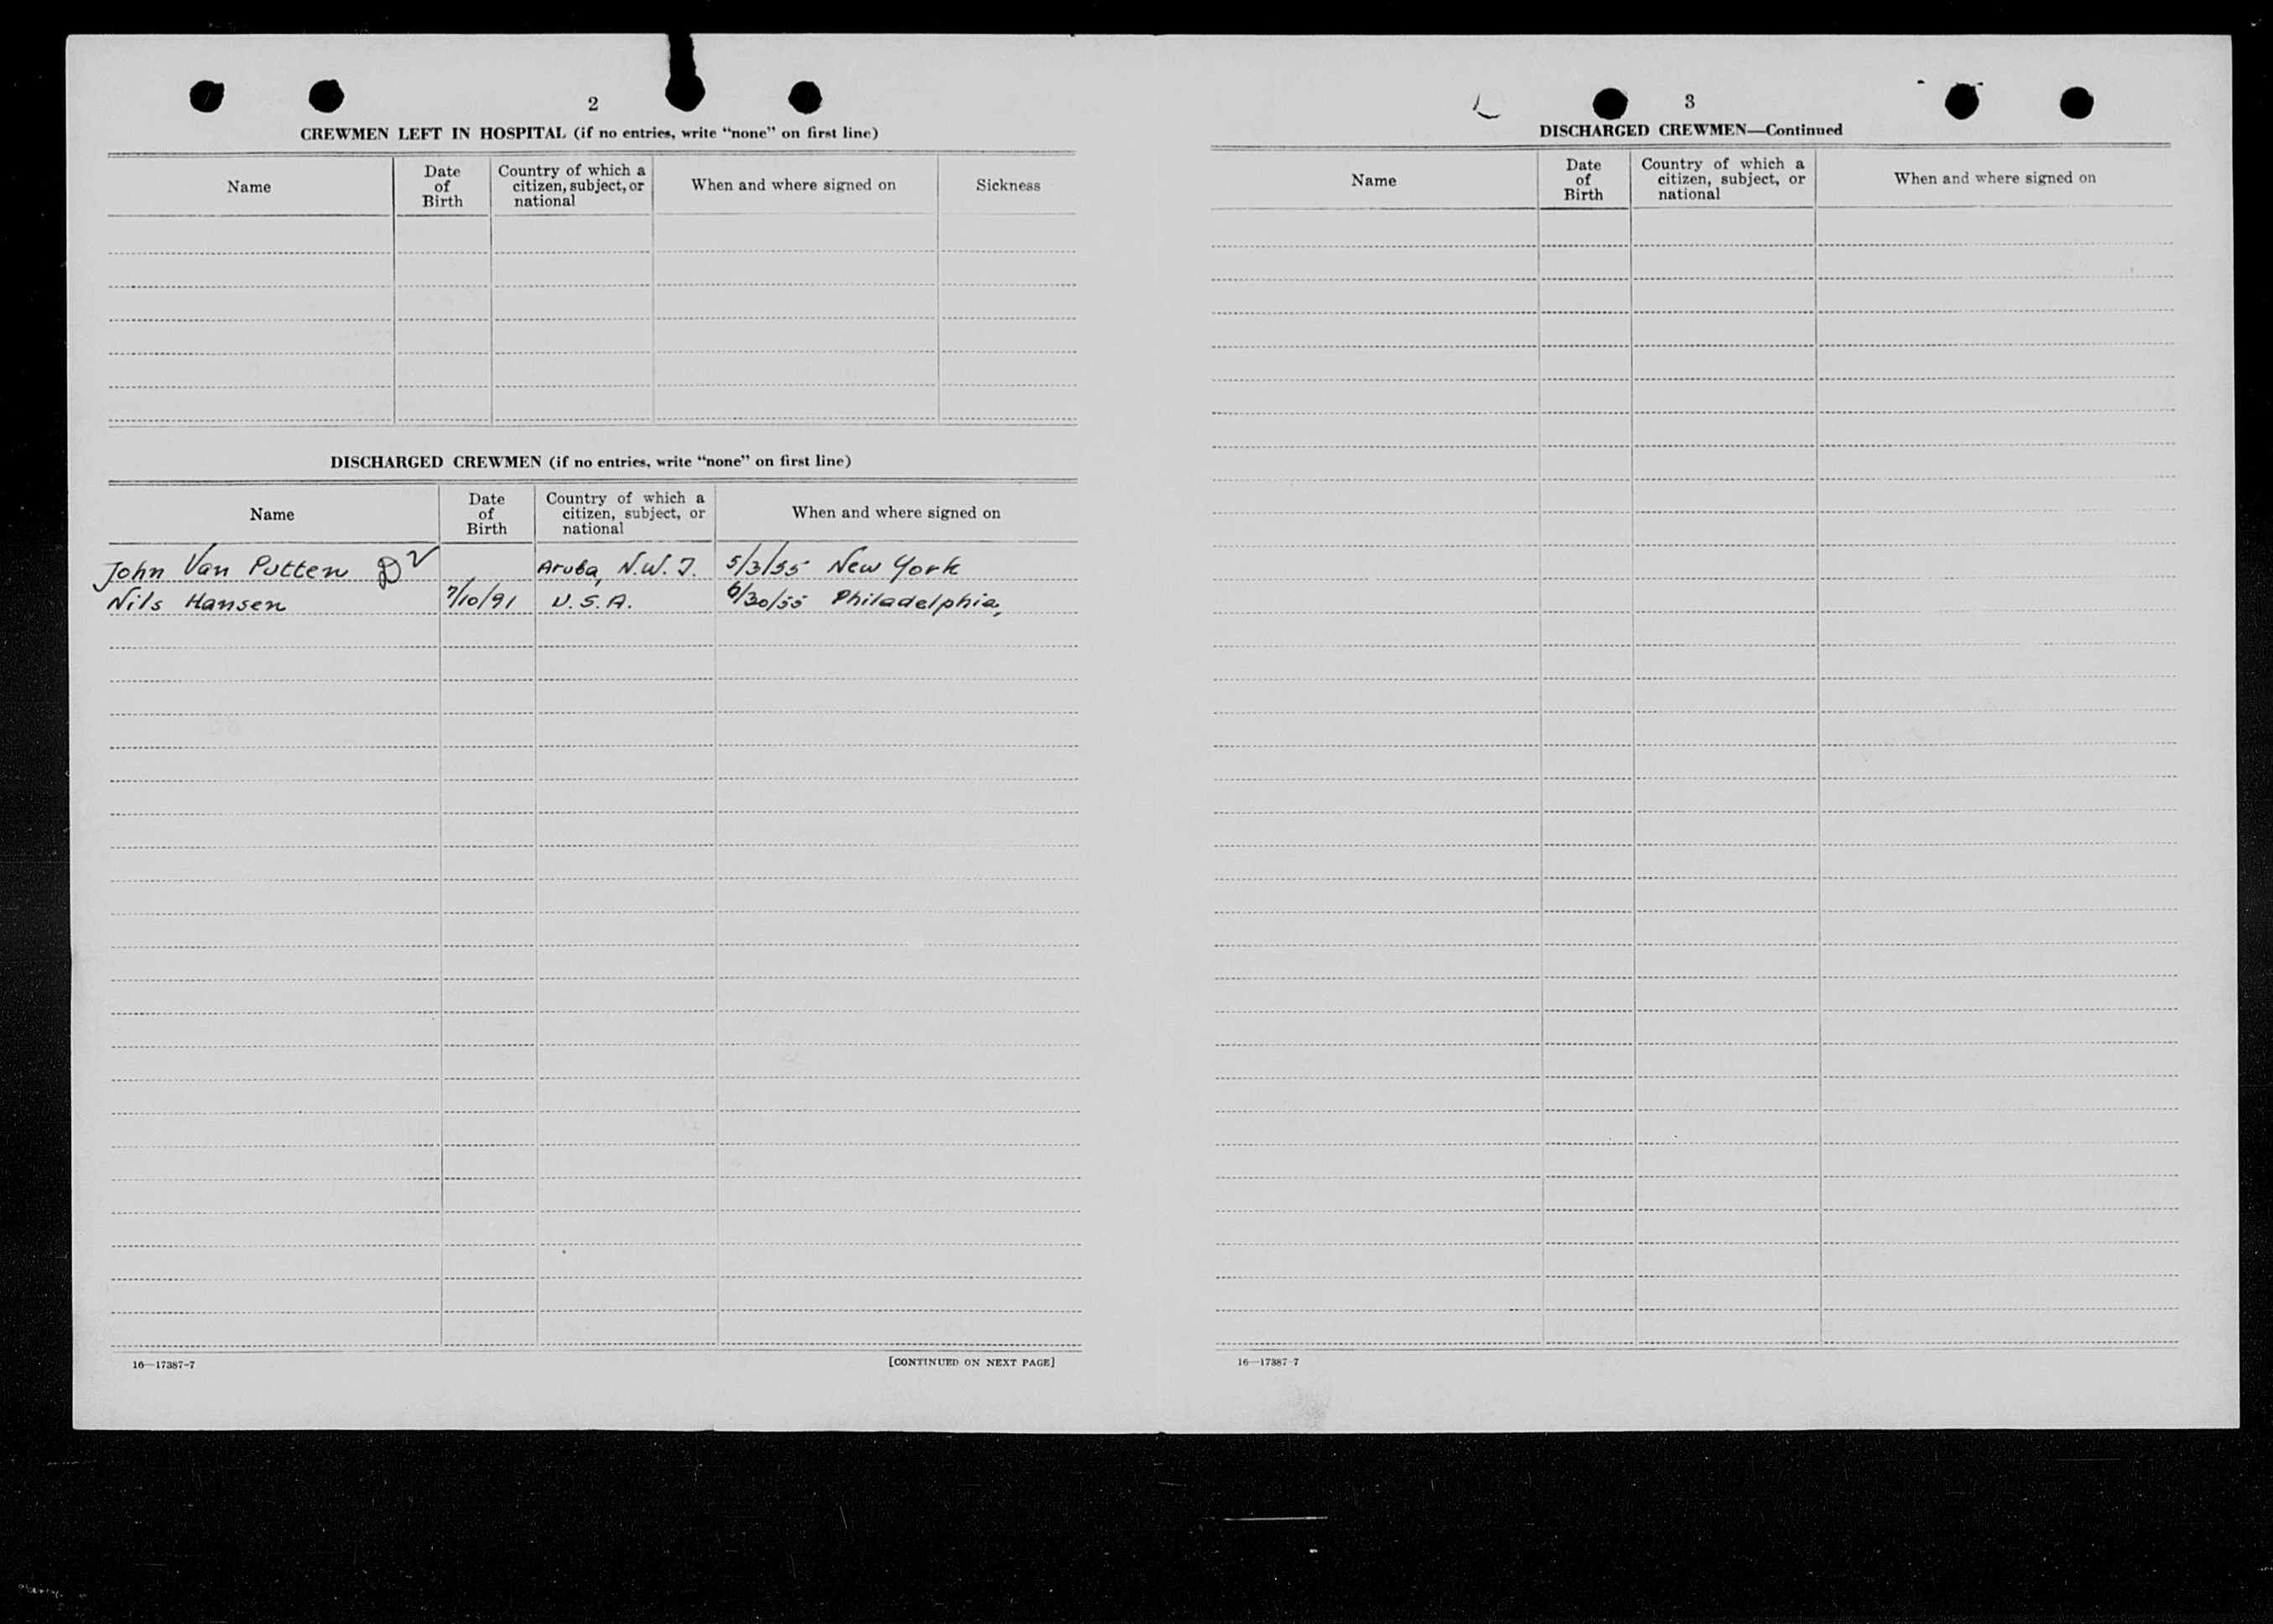 2
CREWMEN LEFT IN HOSPITAL (if no entries, write “none” on first line)
Name
Date of Birth
Country of which a citizen, subject, or national
When and where signed on
Sickness
DISCHARGED CREWMEN (if no entries, write “none” on first line)
Name
Date of Birth
Country of which a citizen, subject, or national
When and where signed on
John Van Putten D ✓ Aruba, N.W.I. 5/3/55 New York
Nils Hansen 7/10/91 U.S.A. 6/30/55 Philadelphia,
16—17387-7
[CONTINUED ON NEXT PAGE]
3
DISCHARGED CREWMEN—Continued
Name
Date of Birth
Country of which a citizen, subject, or national
When and where signed on
16—17387-7